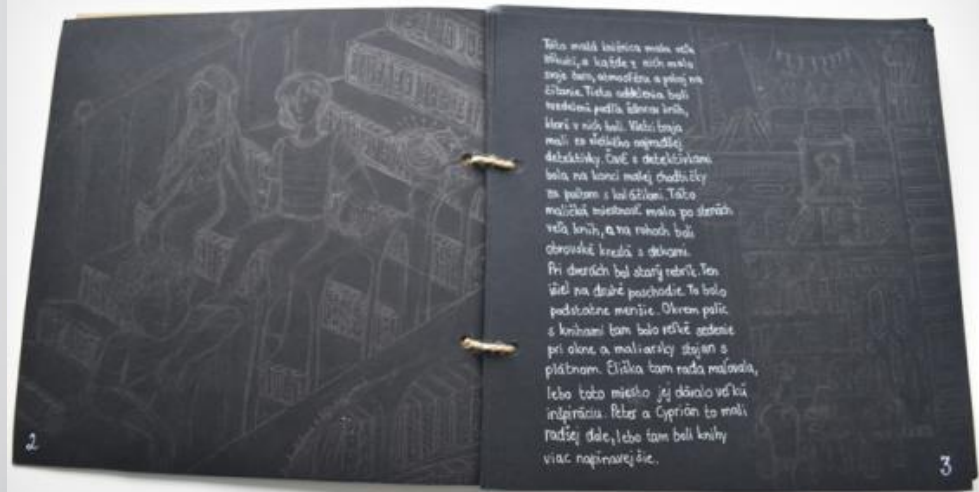 2
Táto malá knižnica mala veľa
zákutí, a každé z nich malo
svoje čaro, atmosféru a pokoj na
čítanie. Tieto oddelenia boli
rozdelené podľa žánrov kníh,
ktoré v nich boli. Všetci traja
mali zo všetkého najradšej
detektívky. Časť s detektívkami
bola na konci malej chodbičky
za pultom s koláčikmi. Táto
maličká miestnosť mala po stenách
veľa kníh, a na rohoch boli
obrovské kreslá s dekami.
Pri dverách bol starý rebrík. Ten
išiel na druhé poschodie. To bolo
podstatne menšie. Okrem políc
s knihami tam bolo veľké sedenie
pri okne a maliarsky stojan s
plátnom. Eliška tam rada maľovala,
lebo toto miesto jej dávalo veľkú
inšpiráciu. Peter a Cyprián to mali
radšej dole, lebo tam boli knihy
viac napínavejšie.
3